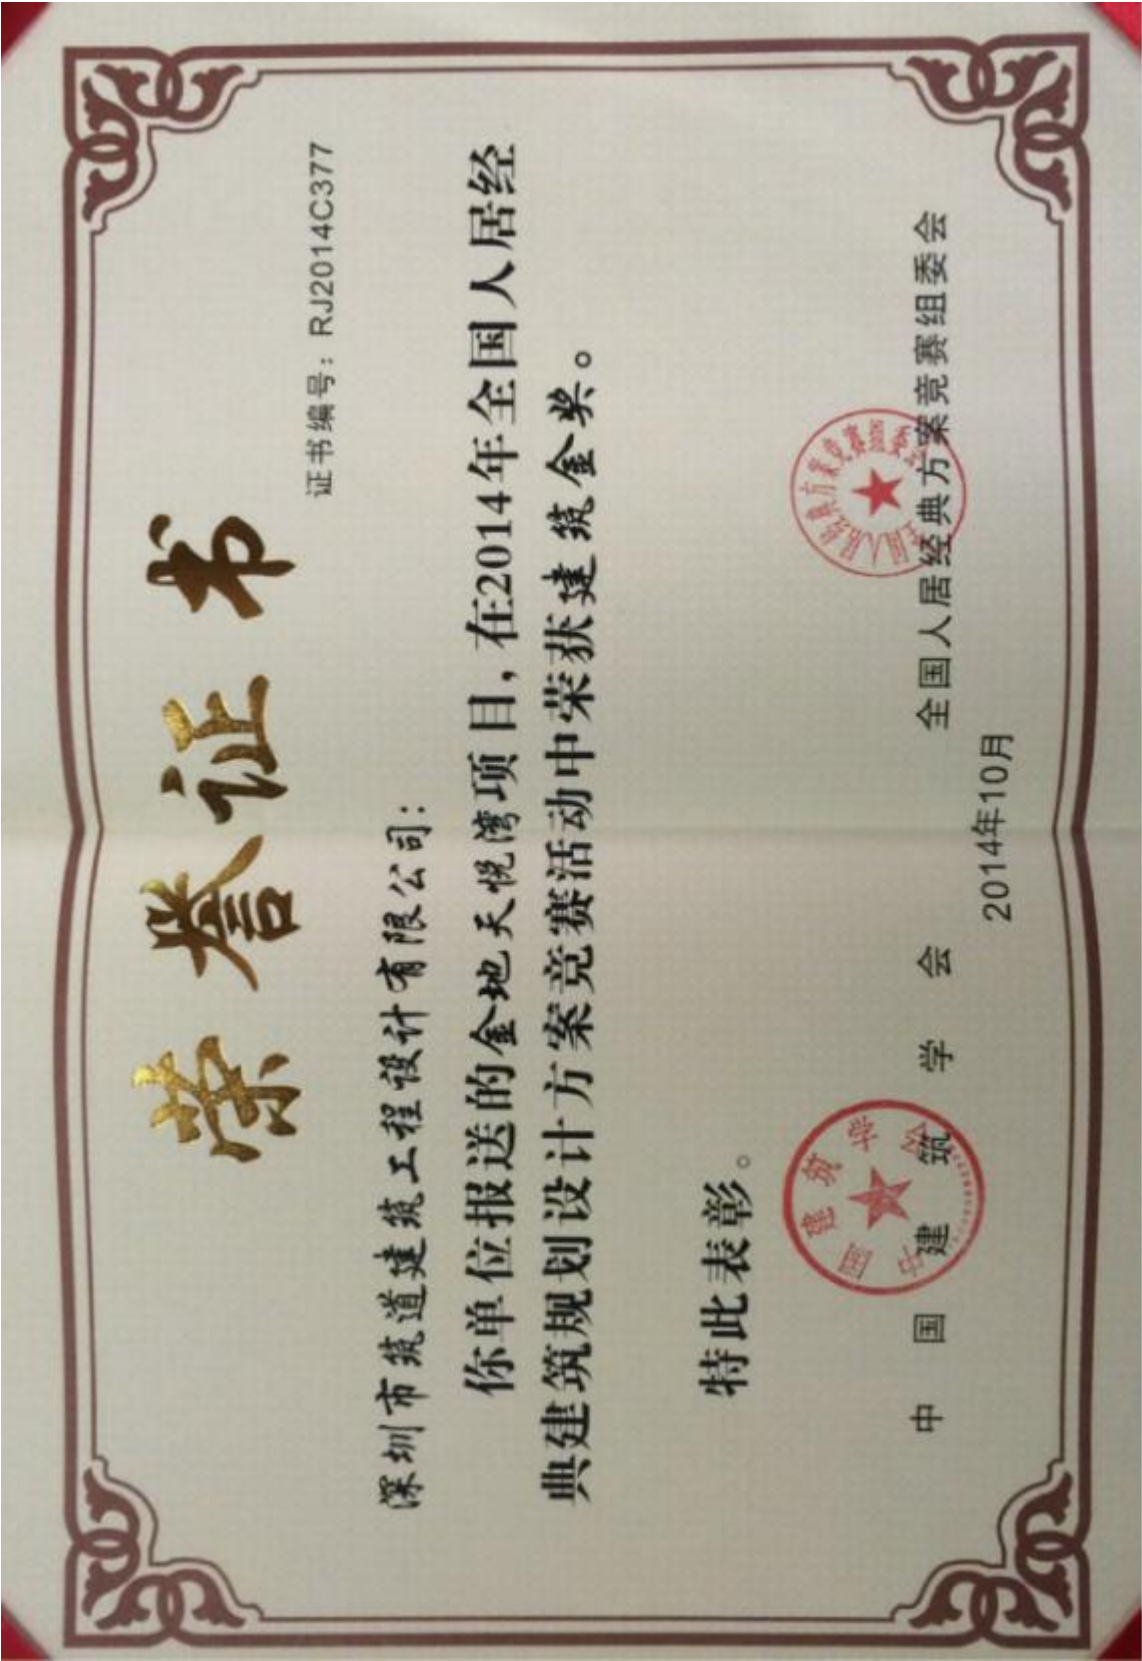 荣誉证书
证书编号：RJ2014C377
深圳市筑道建筑工程设计有限公司：
你单位报送的金地天悦湾项目，在2014年全国人居经
典建筑规划设计方案竞赛活动中荣获建筑金奖。
特此表彰。
中国建筑学会
全国人居经典方案竞赛组委会
2014年10月
中国建筑学会
全国人居经典方案竞赛组委会